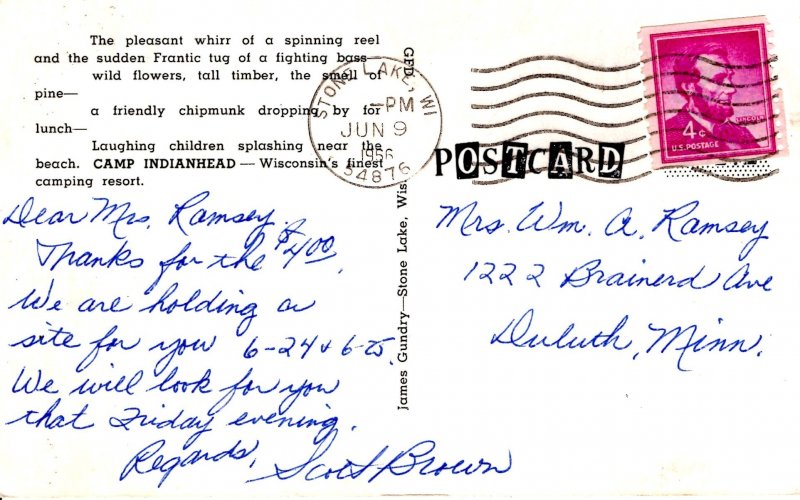 The pleasant whirr of a spinning reel
and the sudden Frantic tug of a fighting bass
wild flowers, tall timber, the smell of
pine—
a friendly chipmunk dropping by for
lunch—
Laughing children splashing near the
beach. CAMP INDIANHEAD — Wisconsin's finest
camping resort.
Dear Mrs. Ramsey,
Thanks for the $4.00.
We are holding a
site for you 6-24 & 6-25.
We will look for you
that Friday evening.
Regards,
Scott Brown
James Gundry—Stone Lake, Wis
STONE LAKE, WI
PM
JUN 9
54876
POSTCARD
LINCOLN
4¢
U.S. POSTAGE
Mrs. Wm. A. Ramsey
1222 Brainerd Ave
Duluth, Minn.